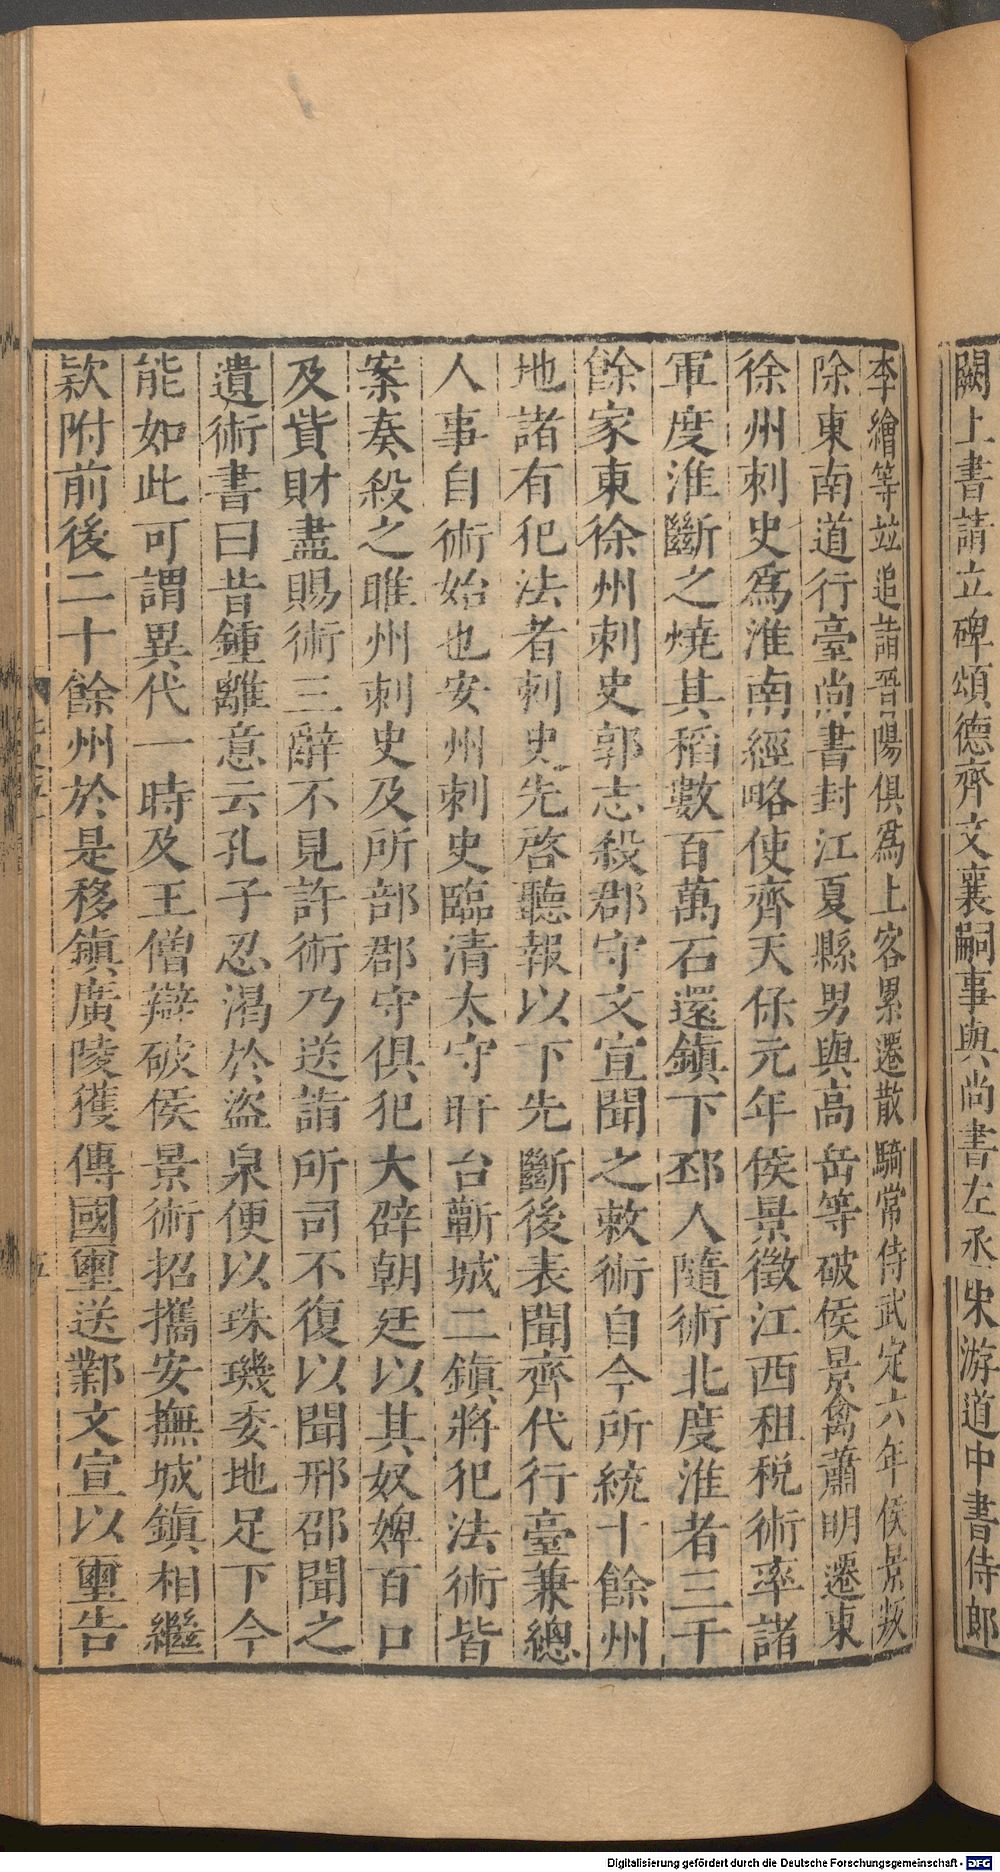 闕上書請立碑頌德齊文襄嗣事與尚書左丞宋游道中書侍郎
李繪等竝追詣晉陽俱爲上客累遷散騎常侍武定六年侯景叛
除東南道行臺尚書封江夏縣男與高岳等破侯景禽蕭明遷東
徐州刺史爲淮南經略使齊天保元年侯景徵江西租稅術率諸
軍度淮斷之燒其稻數百萬石還鎮下邳人隨術北度淮者三千
餘家東徐州刺史郭志殺郡守文宣聞之敕術自今所統十餘州
地諸有犯法者刺史先啓聽報以下先斷後表聞齊代行臺兼總
人事自術始也安州刺史臨清太守盱台蘄城二鎮將犯法術皆
案奏殺之睢州刺史及所部郡守俱犯大辟朝廷以其奴婢百口
及貲財盡賜術三辭不見許術乃送詣所司不復以聞邢邵聞之
遺術書曰昔鍾離意云孔子忍渴於盜泉便以珠璣委地足下今
能如此可謂異代一時及王僧辯破侯景術招攜安撫城鎮相繼
款附前後二十餘州於是移鎮廣陵獲傳國璽送鄴文宣以璽告
Digitalisierung gefördert durch die Deutsche Forschungsgemeinschaft - DFG